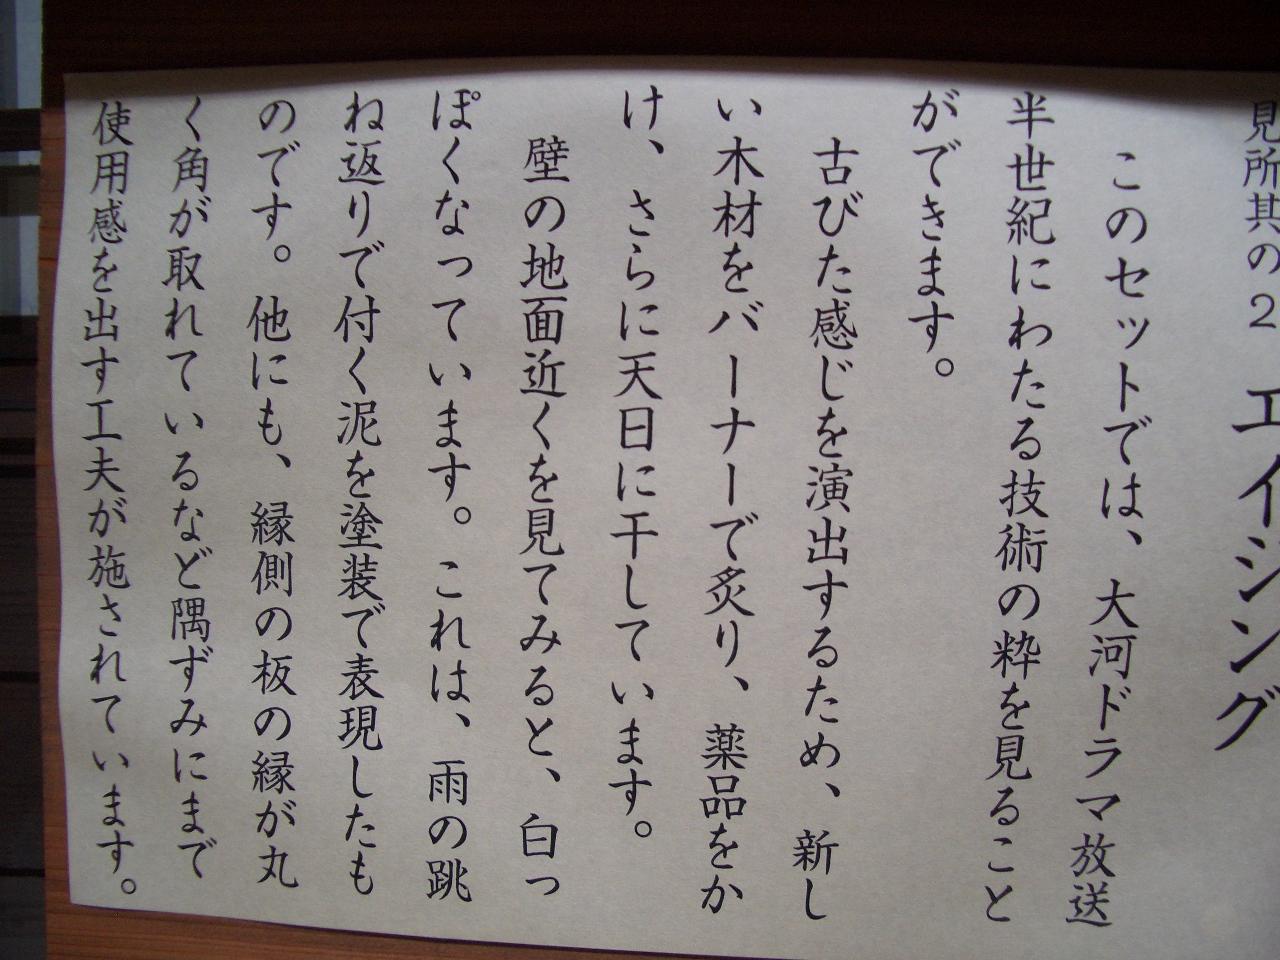 見所其の２　エイジング
このセットでは、大河ドラマ放送
半世紀にわたる技術の粋を見ること
ができます。
古びた感じを演出するため、新し
い木材をバーナーで炙り、薬品をか
け、さらに天日に干しています。
壁の地面近くを見てみると、白っ
ぽくなっています。これは、雨の跳
ね返りで付く泥を塗装で表現したも
のです。他にも、縁側の板の縁が丸
く角が取れているなど隅ずみにまで
使用感を出す工夫が施されています。